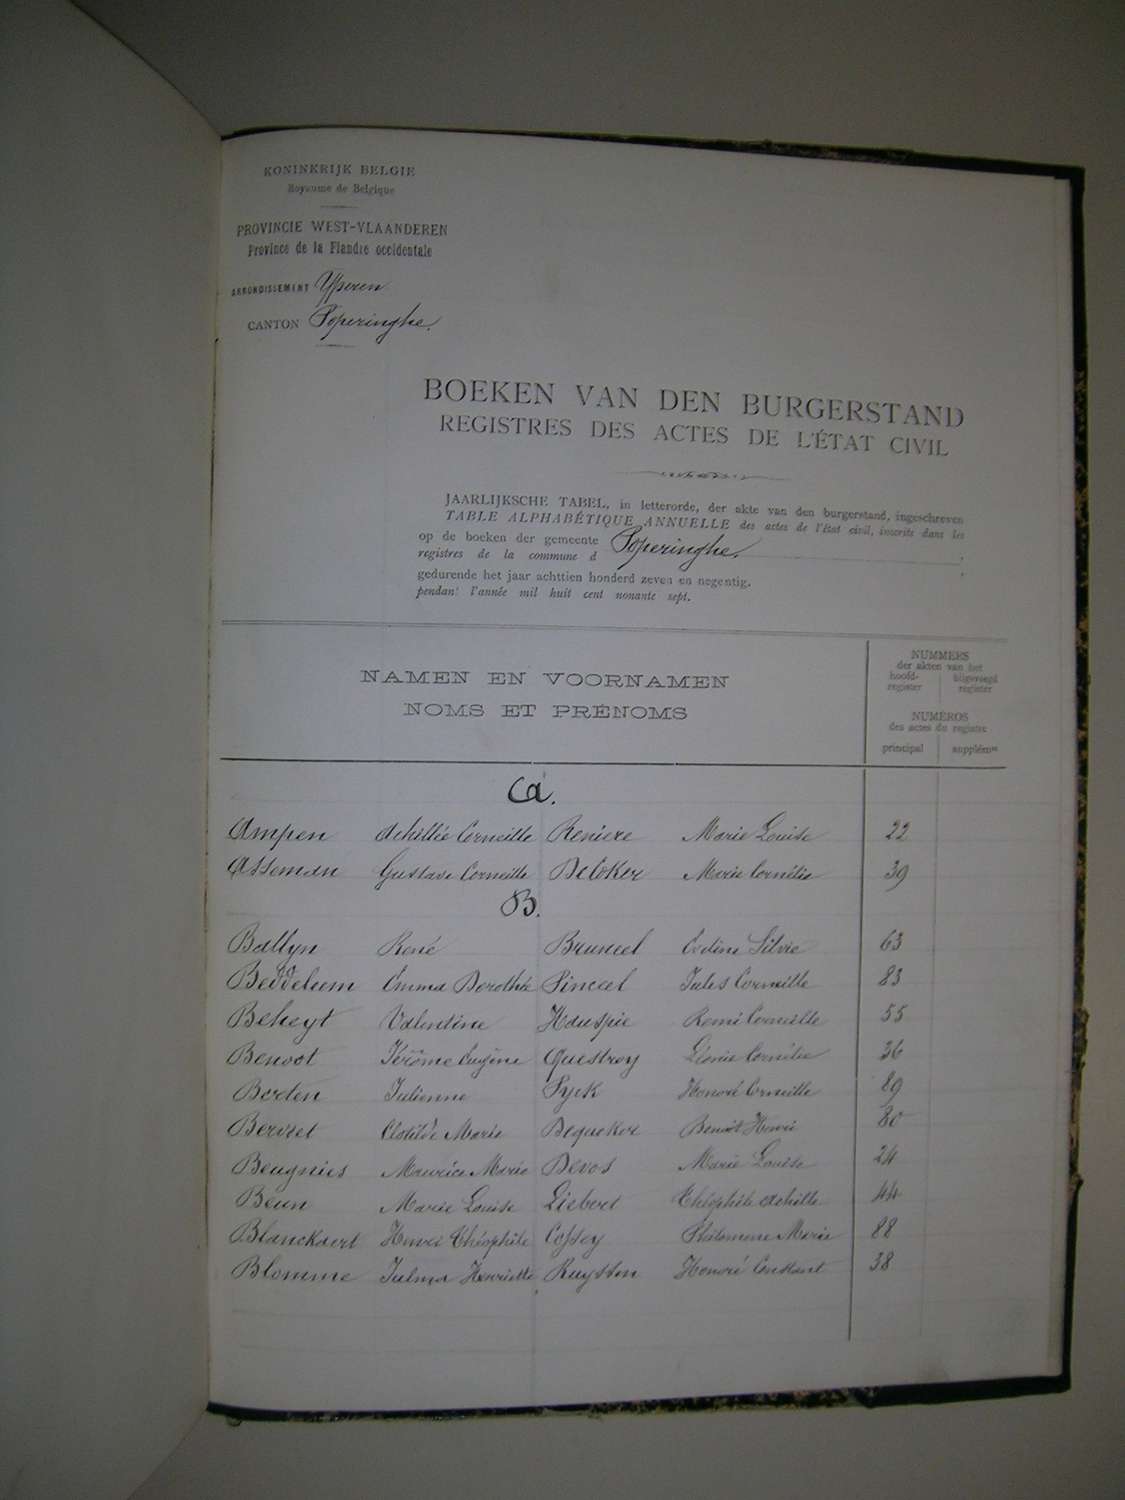 KONINKRIJK BELGIE
Royaume de Belgique
PROVINCIE WEST-VLAANDEREN
Province de la Flandre occidentale
ARRONDISSEMENT Yperen
CANTON Poperinghe.
BOEKEN VAN DEN BURGERSTAND
REGISTRES DES ACTES DE L'ÉTAT CIVIL
JAARLIJKSCHE TABEL, in letterorde, der akte van den burgerstand, ingeschreven
TABLE ALPHABÉTIQUE ANNUELLE des actes de l'état civil, inscrits dans les
op de boeken der gemeente Poperinghe.
registres de la commune d
gedurende het jaar achttien honderd zeven en negentig.
pendant l'année mil huit cent nonante sept.
NAMEN EN VOORNAMEN
NOMS ET PRÉNOMS
NUMMERS
der akten van het
hoofd-register
bijgevoegd register
NUMÉROS
des actes du registre
principal supplémre
A.
Ampen Achillée Corneille Reniere Marie Louise 22
Asseman Gustave Corneille DeCoker Marie Cornélie 39
B.
Ballyn René Bruneel Silvie 63
Beddeleem Emma Dorothée Pinceel Jules Corneille 83
Beheyt Valentine Hauspie Remi Corneille 55
Benoot Jérôme Eugène Questroy Léonie Cornélie 36
Berten Julienne Syck Honoré Corneille 89
Berviet Clotilde Marie Dequeker Benoit Henri 80
Beugnies Maurice Marie Devos Marie Louise 24
Beun Marie Louise Liebert Théophile Achille 44
Blanckaert Henri Théophile Cossey Philomene Marie 88
Blomme Julma Henriette Ruyssen Honoré Constant 38